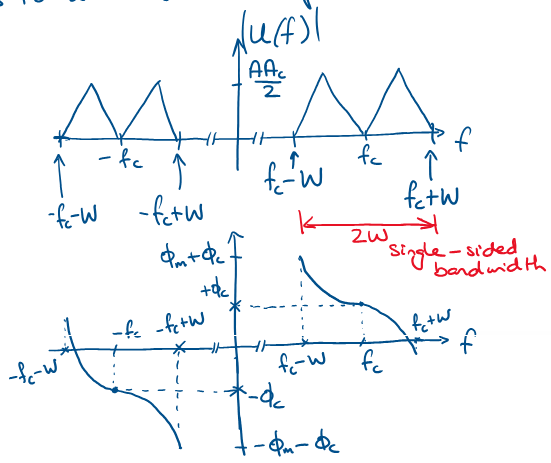 |U(f)|
AAc/2
-fc
fc
f
-fc-W
-fc+W
fc-W
fc+W
2W
single-sided
bandwidth
ϕm+ϕc
+ϕc
-fc
-fc+W
fc+W
-fc-W
fc-W
fc
f
-ϕc
-ϕm-ϕc